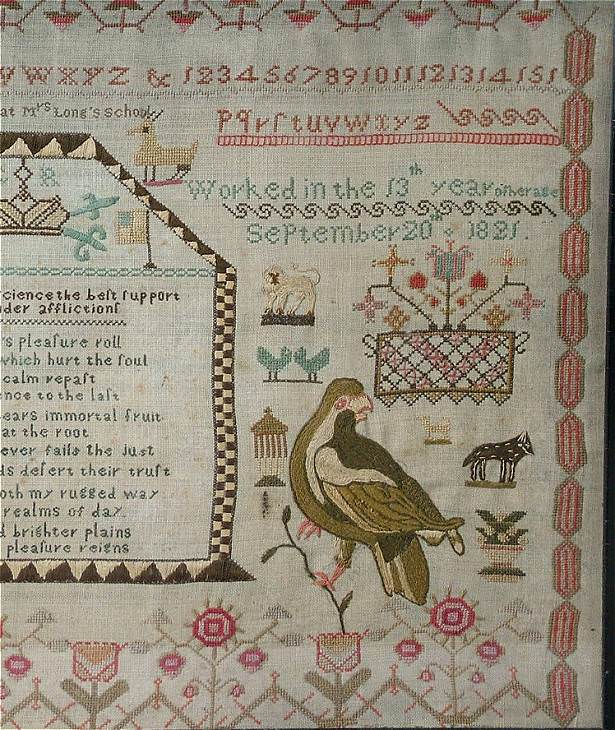 WXYZ & 123456789101112131415 1
at Mrs Long's School
Pqrſtuvwxyz
R
Worked in the 13th year of her age
September 20th 1821.
cience the beſt ſupport
nder afflictionſ
's pleaſure roll
which hurt the ſoul
calm repaſt
ence to the laſt
ears immortal fruit
at the root
ever fails the Just
ds deſert their truſt
oth my rugged way
realms of day
d brighter plains
pleaſure reigns